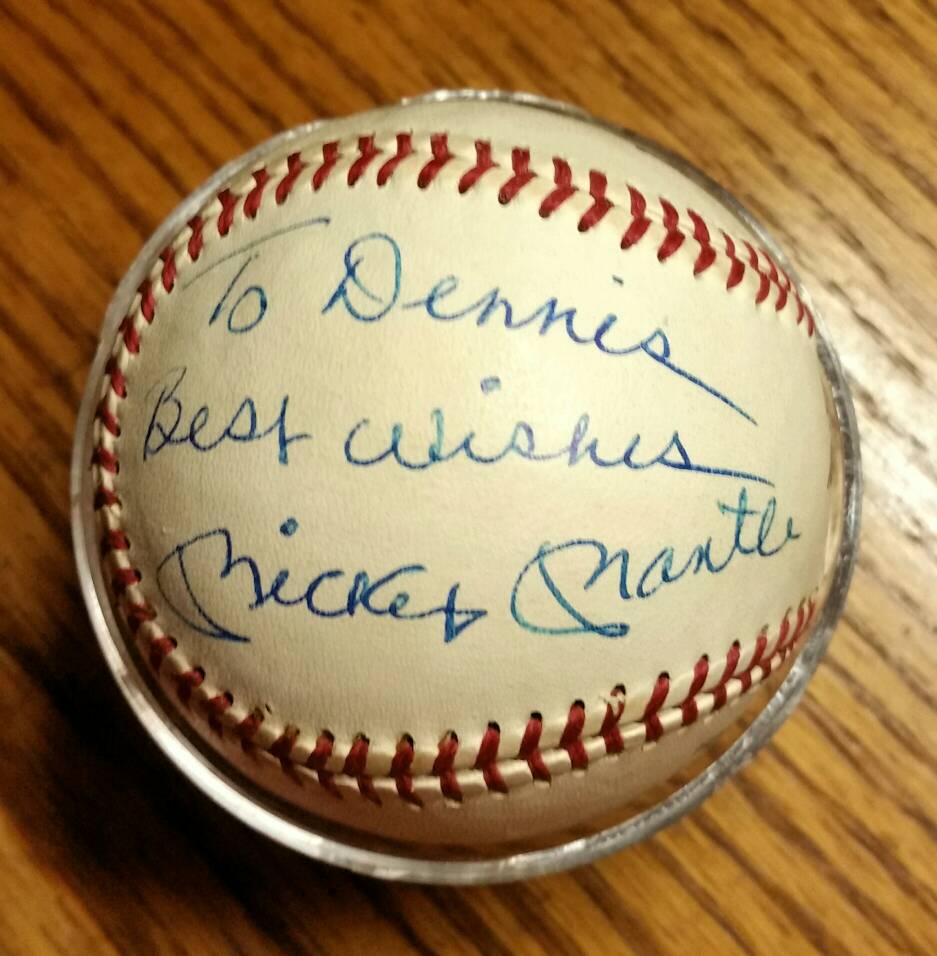 To Dennis
Best Wishes
Mickey Mantle